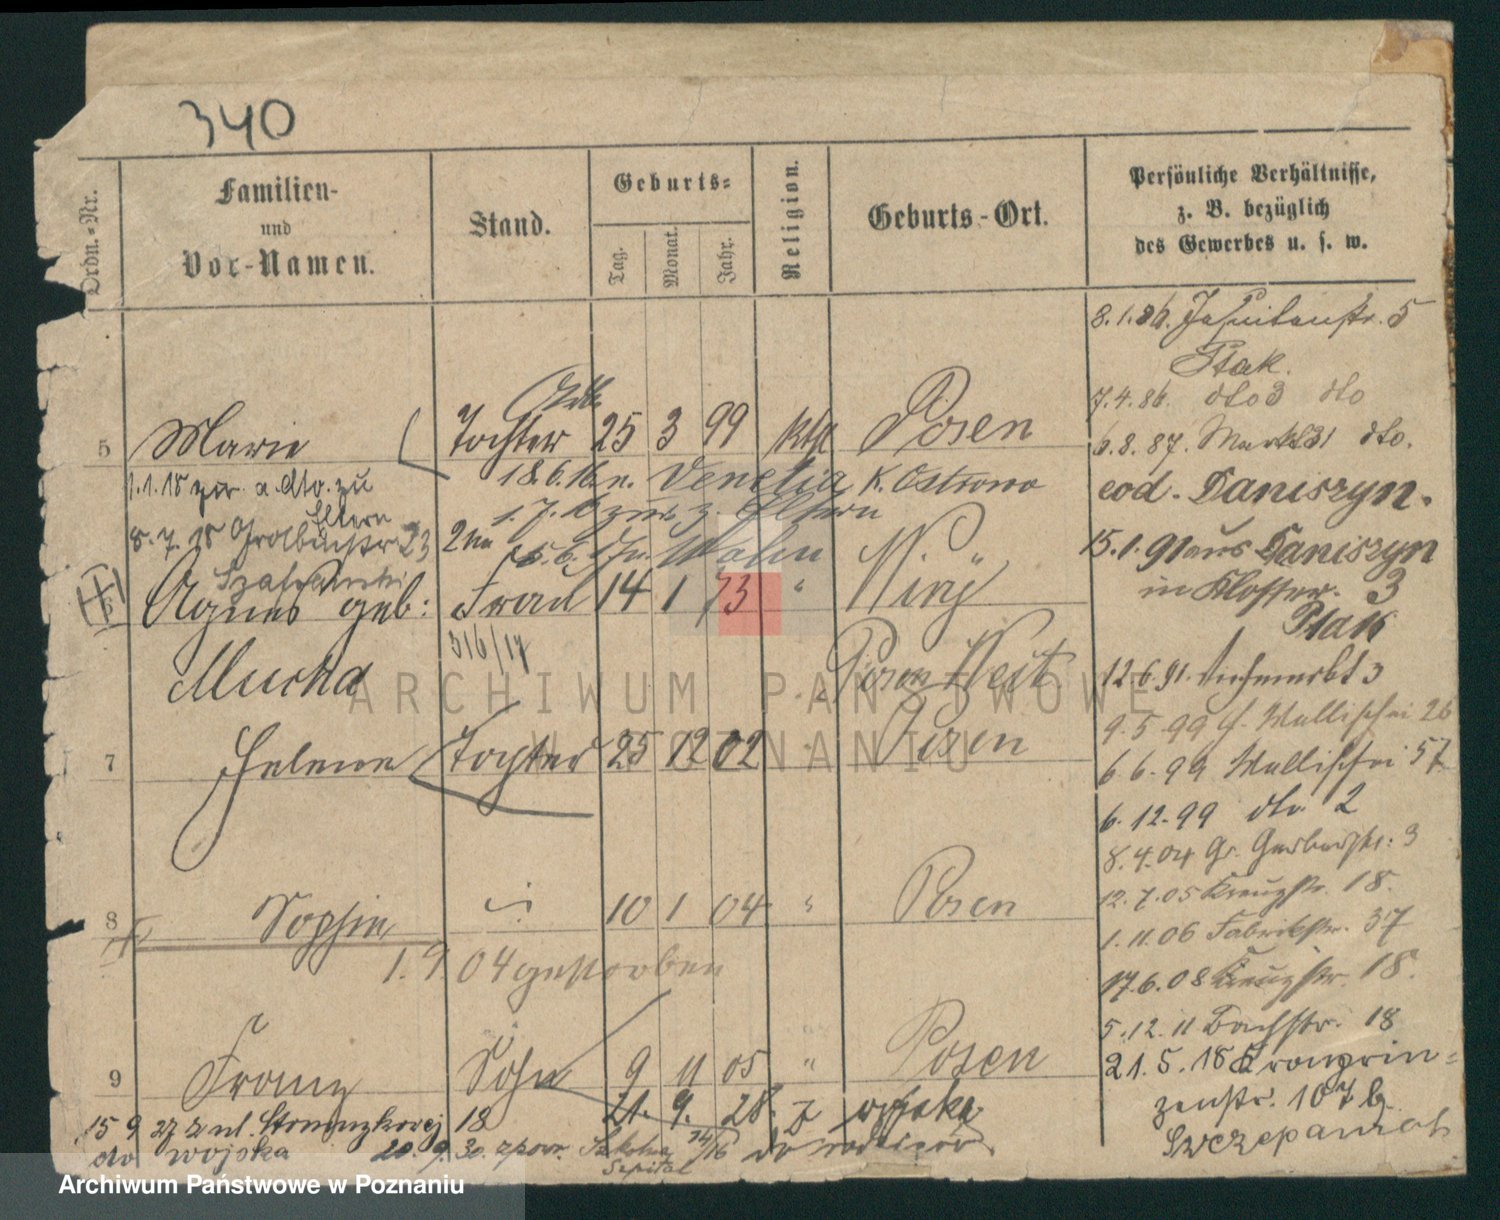 340
Ordn.-Nr.
Familien-
und
Vor-Namen.
Stand.
Geburts-
Tag.
Monat.
Jahr.
Religion.
Geburts-Ort.
Persönliche Verhältnisse,
z. B. bezüglich
des Gewerbes u. s. w.
5 Marie Tochter 25 3 99 kth Posen
1.1.18 zur. a. dto. zu
Eltern
18.6.16. n. Venetia K. Ostrowo
1.7.16 zur. z. Eltern
8.7.18 23
2te
6 Agnes geb: Frau 14 1 73 "
Mucha
316/17
Posen West
7 Helene Tochter 25 12 02 " Posen
8 Sophie " 10 1 04 " Posen
1.9 04 gestorben
9 Franz Sohn 9 11 05 " Posen
21. 9. 28. z wojska
15 9 27 z ul. Strumykowej 18
do wojska 20. 9. 30. zpow. Szkolna 14/16 do rodziców
Szpital
8.1.86. Jesuitenstr. 5
Ptak.
7.4.86. dto 3 dto
6.8.87. Markt 31 dto.
eod. Daniszyn.
15.1.91 aus Daniszyn
in Kloster. 3
Ptak
12.6.91. 3
9.5.99 Wallischei 26
6.6.99 Wallischei 57
6.12.99 dto 2
8.4.04 Gr. Gerberstr. 3
12.7.05 Kreuzstr. 18.
1.11.06 Fabrikstr. 37
17.6.08 Kreuzstr. 18.
5.12.11 Bachstr. 18
21.5.18 Kronprin-
zenstr. 107 b.
Szczepaniak
ARCHIWUM PAŃSTWOWE
W POZNANIU
Archiwum Państwowe w Poznaniu